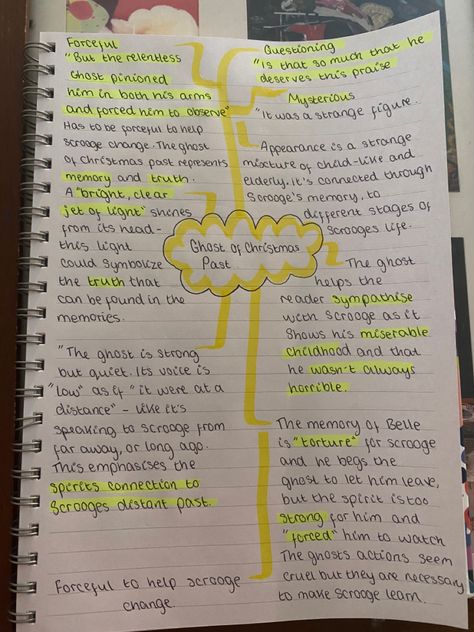 Forceful
"But the relentless
Ghost pinioned
him in both his arms
and forced him to observe"
Has to be forceful to help
Scrooge change. The ghost
of Christmas past represents
memory and truth.
A "bright, clear
jet of light" shines
from its head-
this light
could symbolize
the truth that
can be found in the
memories.
"The ghost is strong
but quiet. Its voice is
"low" as if "it were at a
distance" - like it's
speaking to scrooge from
far away, or long ago.
This emphasises the
spirits connection to
Scrooges distant past.
Forceful to help scrooge
change.
Ghost of Christmas
Past
Questioning
"Is that so much that he
deserves this praise
Mysterious
"It was a strange figure.
Appearance is a strange
mixture of child-like and
elderly. It's connected through
Scrooge's memory, to
different stages of
Scrooges life.
The ghost
helps the
reader sympathise
with Scrooge as it
shows his miserable
childhood and that
he wasn't always
horrible.
The memory of Belle
is "torture" for scrooge
and he begs the
ghost to let him leave,
but the spirit is too
strong for him and
"forced" him to watch
The ghosts actions seem
cruel but they are necessary
to make Scrooge learn.